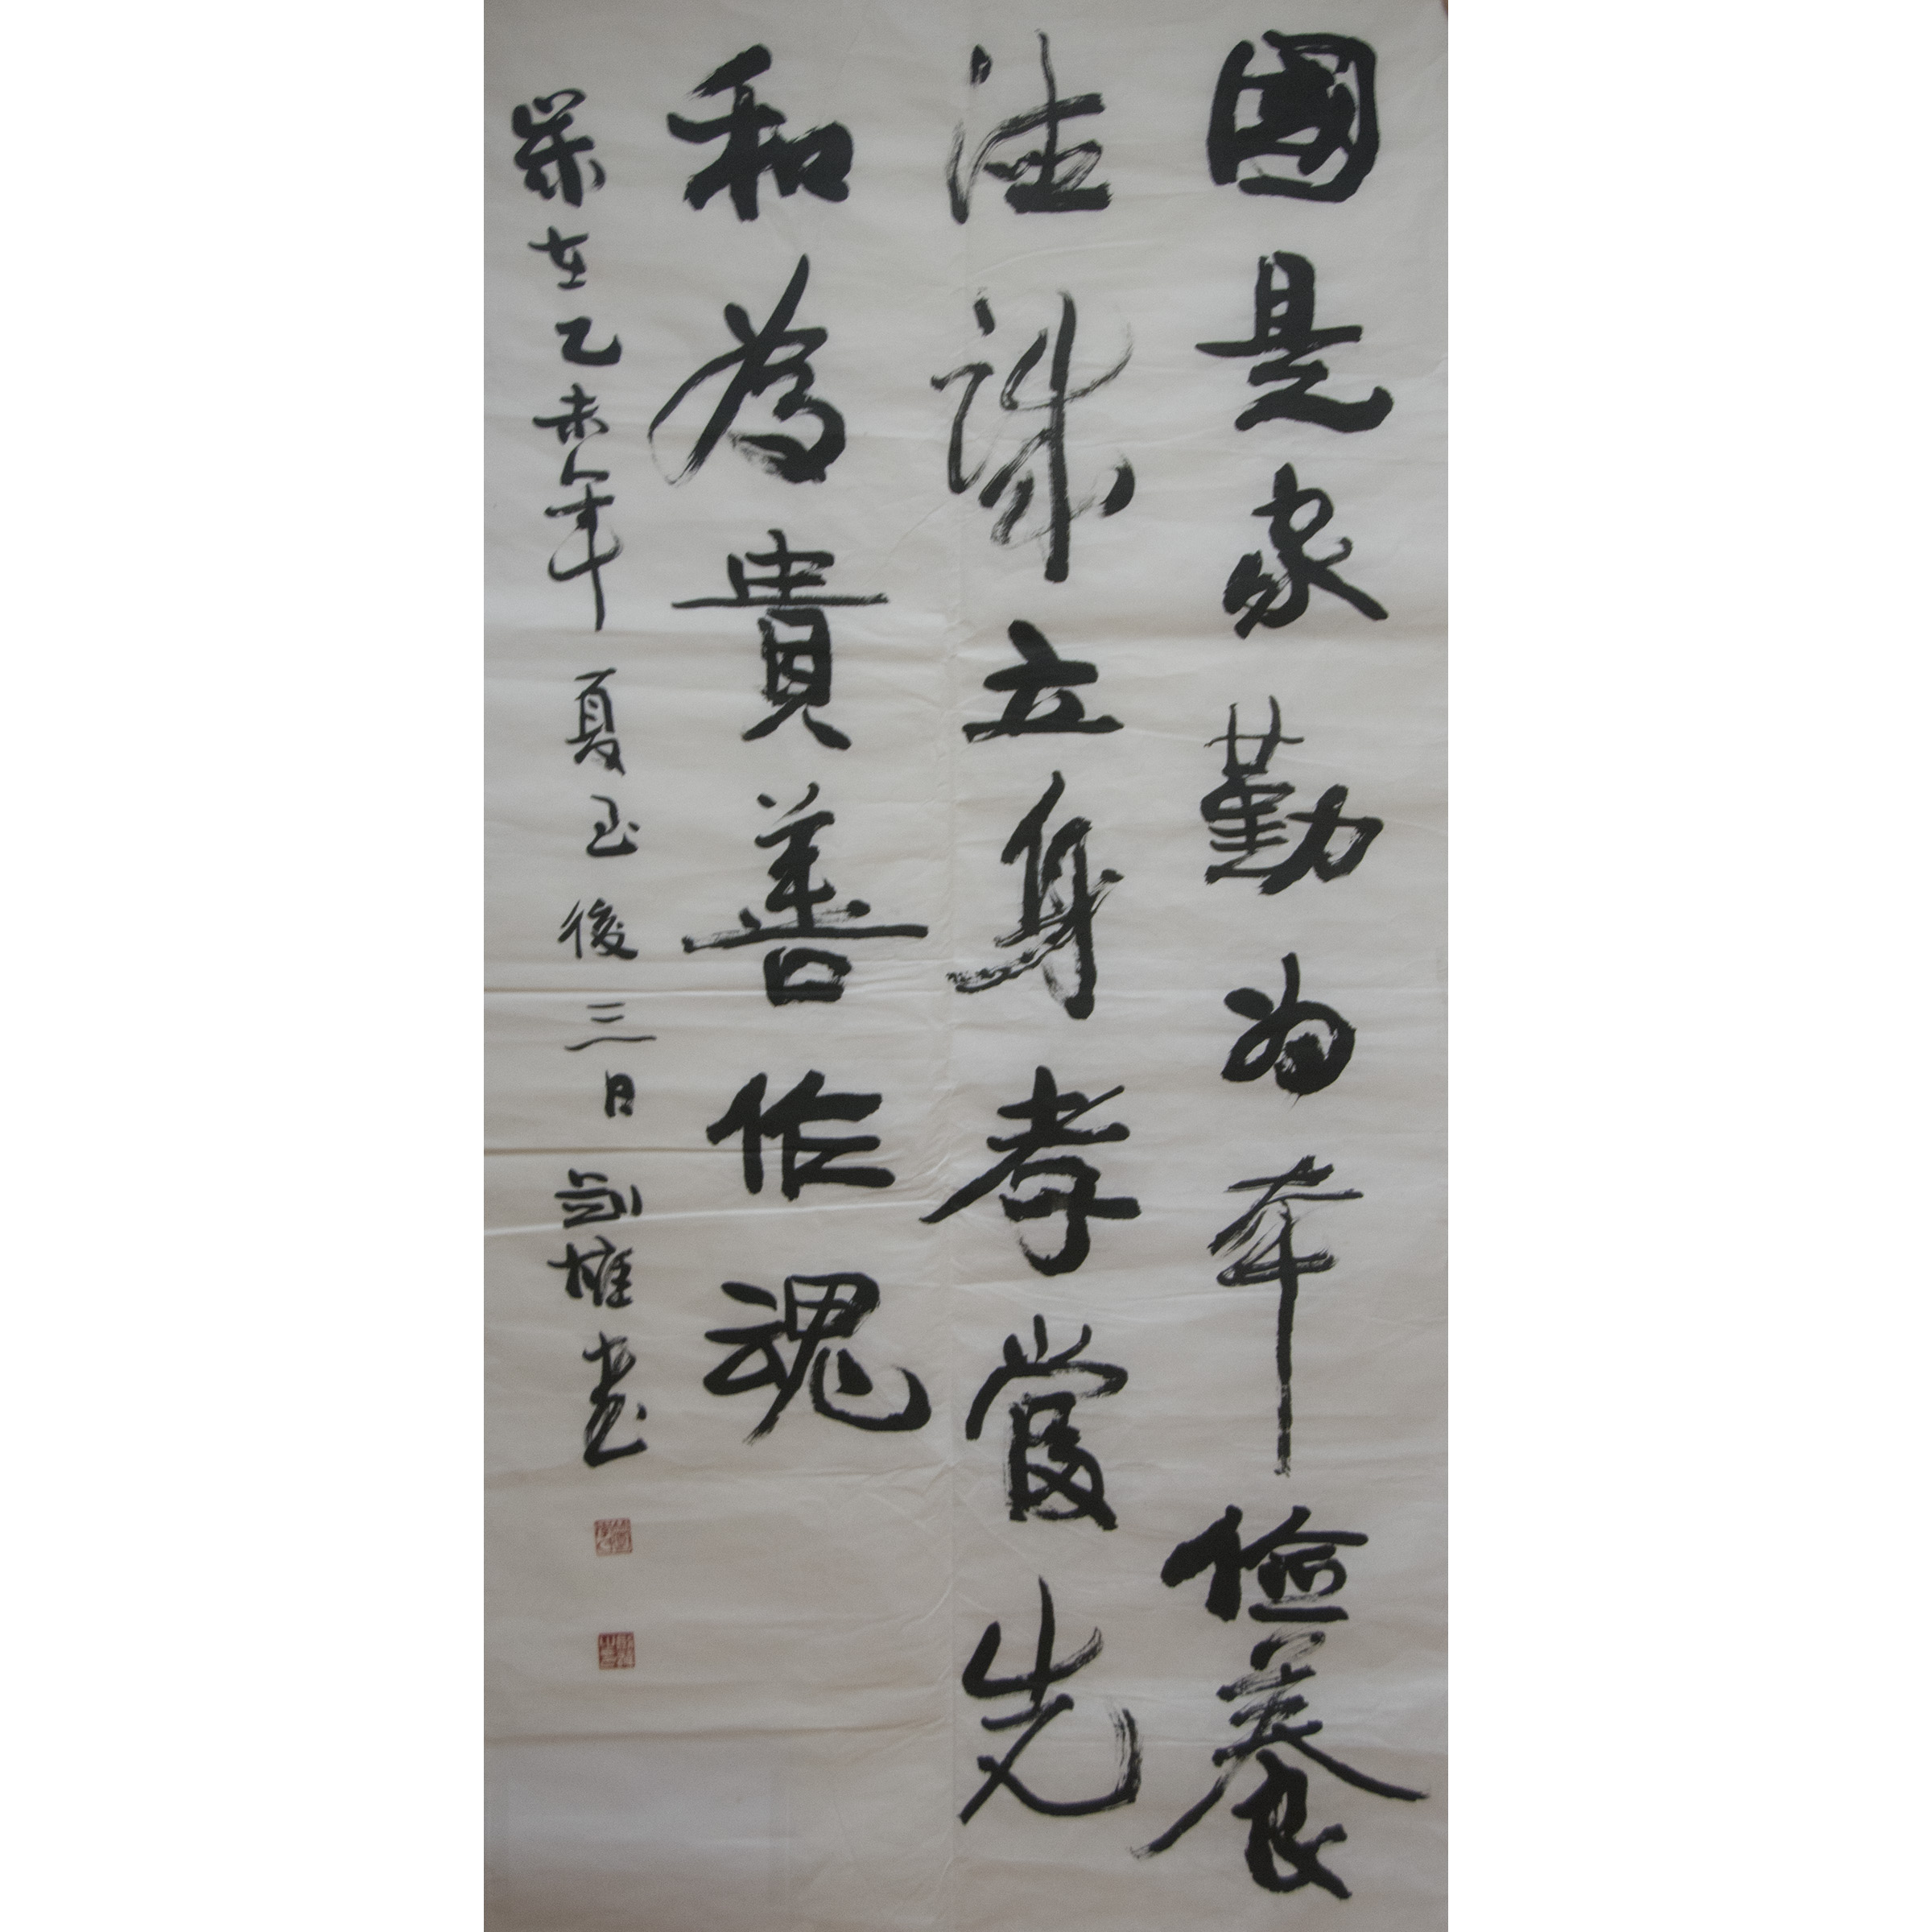 國是家勤为本儉養
德誠立身孝當先
和為貴善作魂
歲在乙未年夏至後三日劍雄書